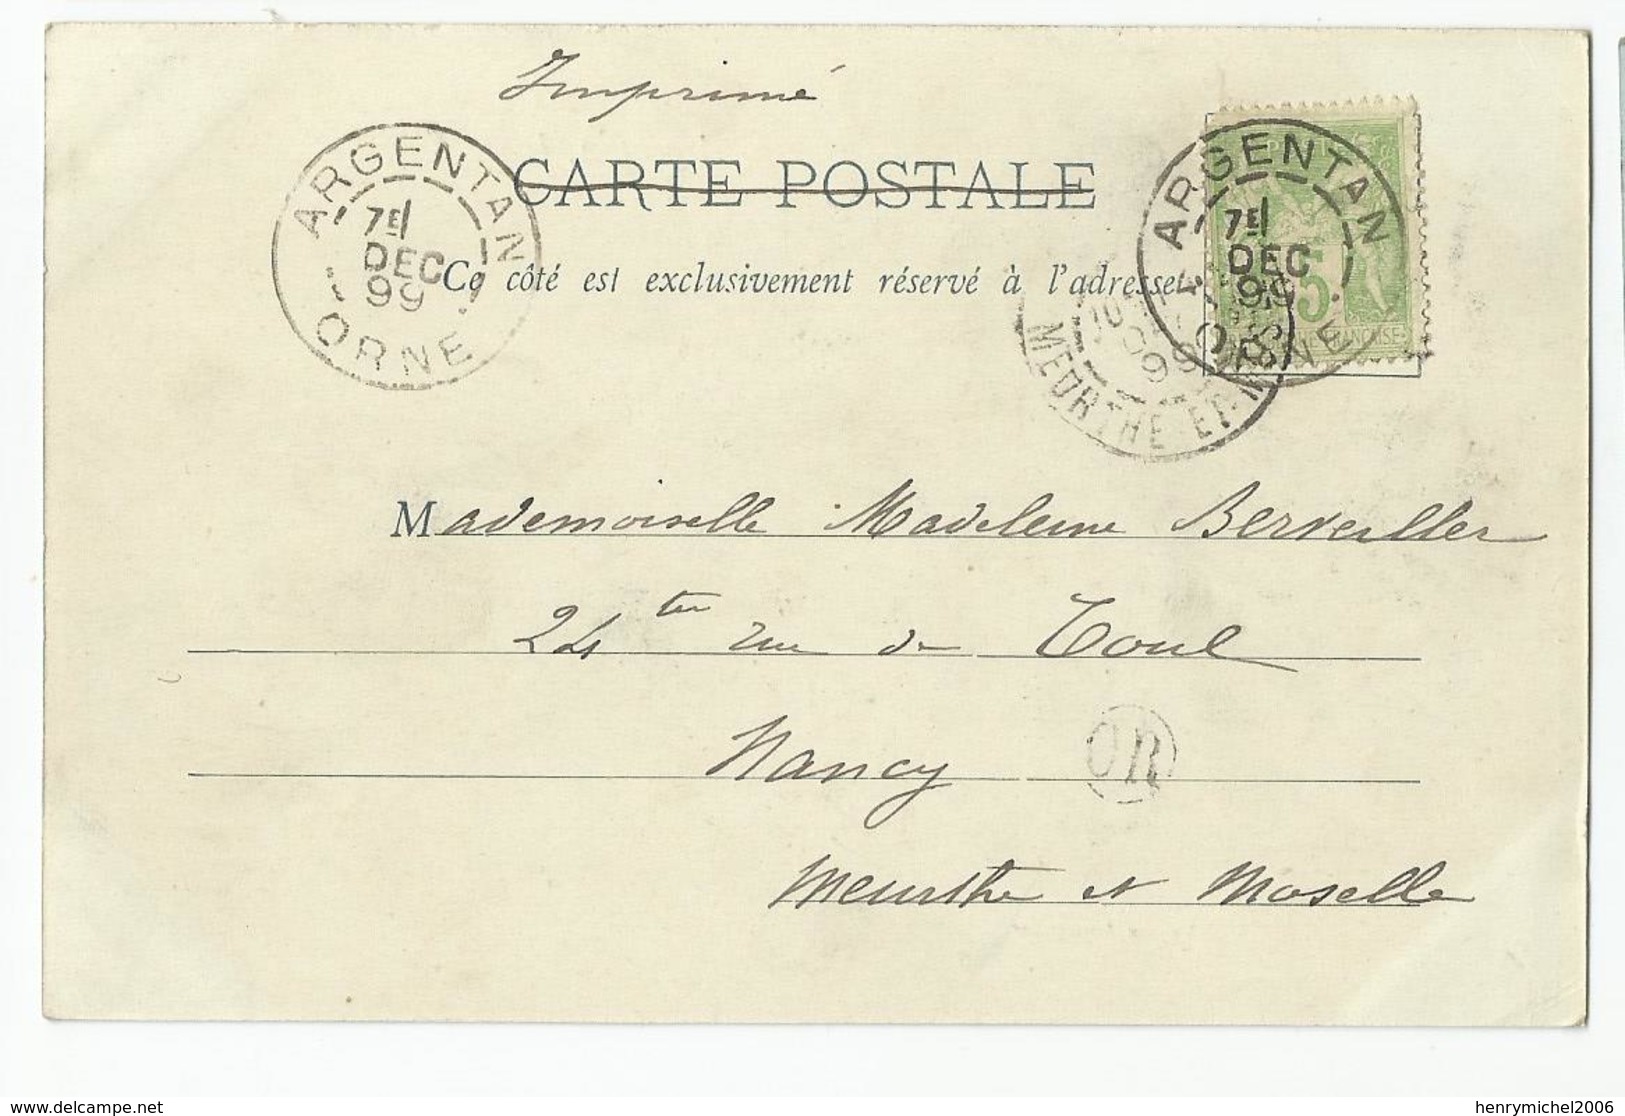 Imprimé
CARTE POSTALE
Ce côté est exclusivement réservé à l'adresse
ARGENTAN
7E
DEC
99
ORNE
ARGENTAN
7E
DEC
99
ORNE
5
FRANÇAISE
99
MEURTHE-ET-M
Mademoiselle Madeleine Berveiller
24 ter rue de Toul
Nancy
OR
Meurthe et Moselle
delcampe.net
henrymichel2006